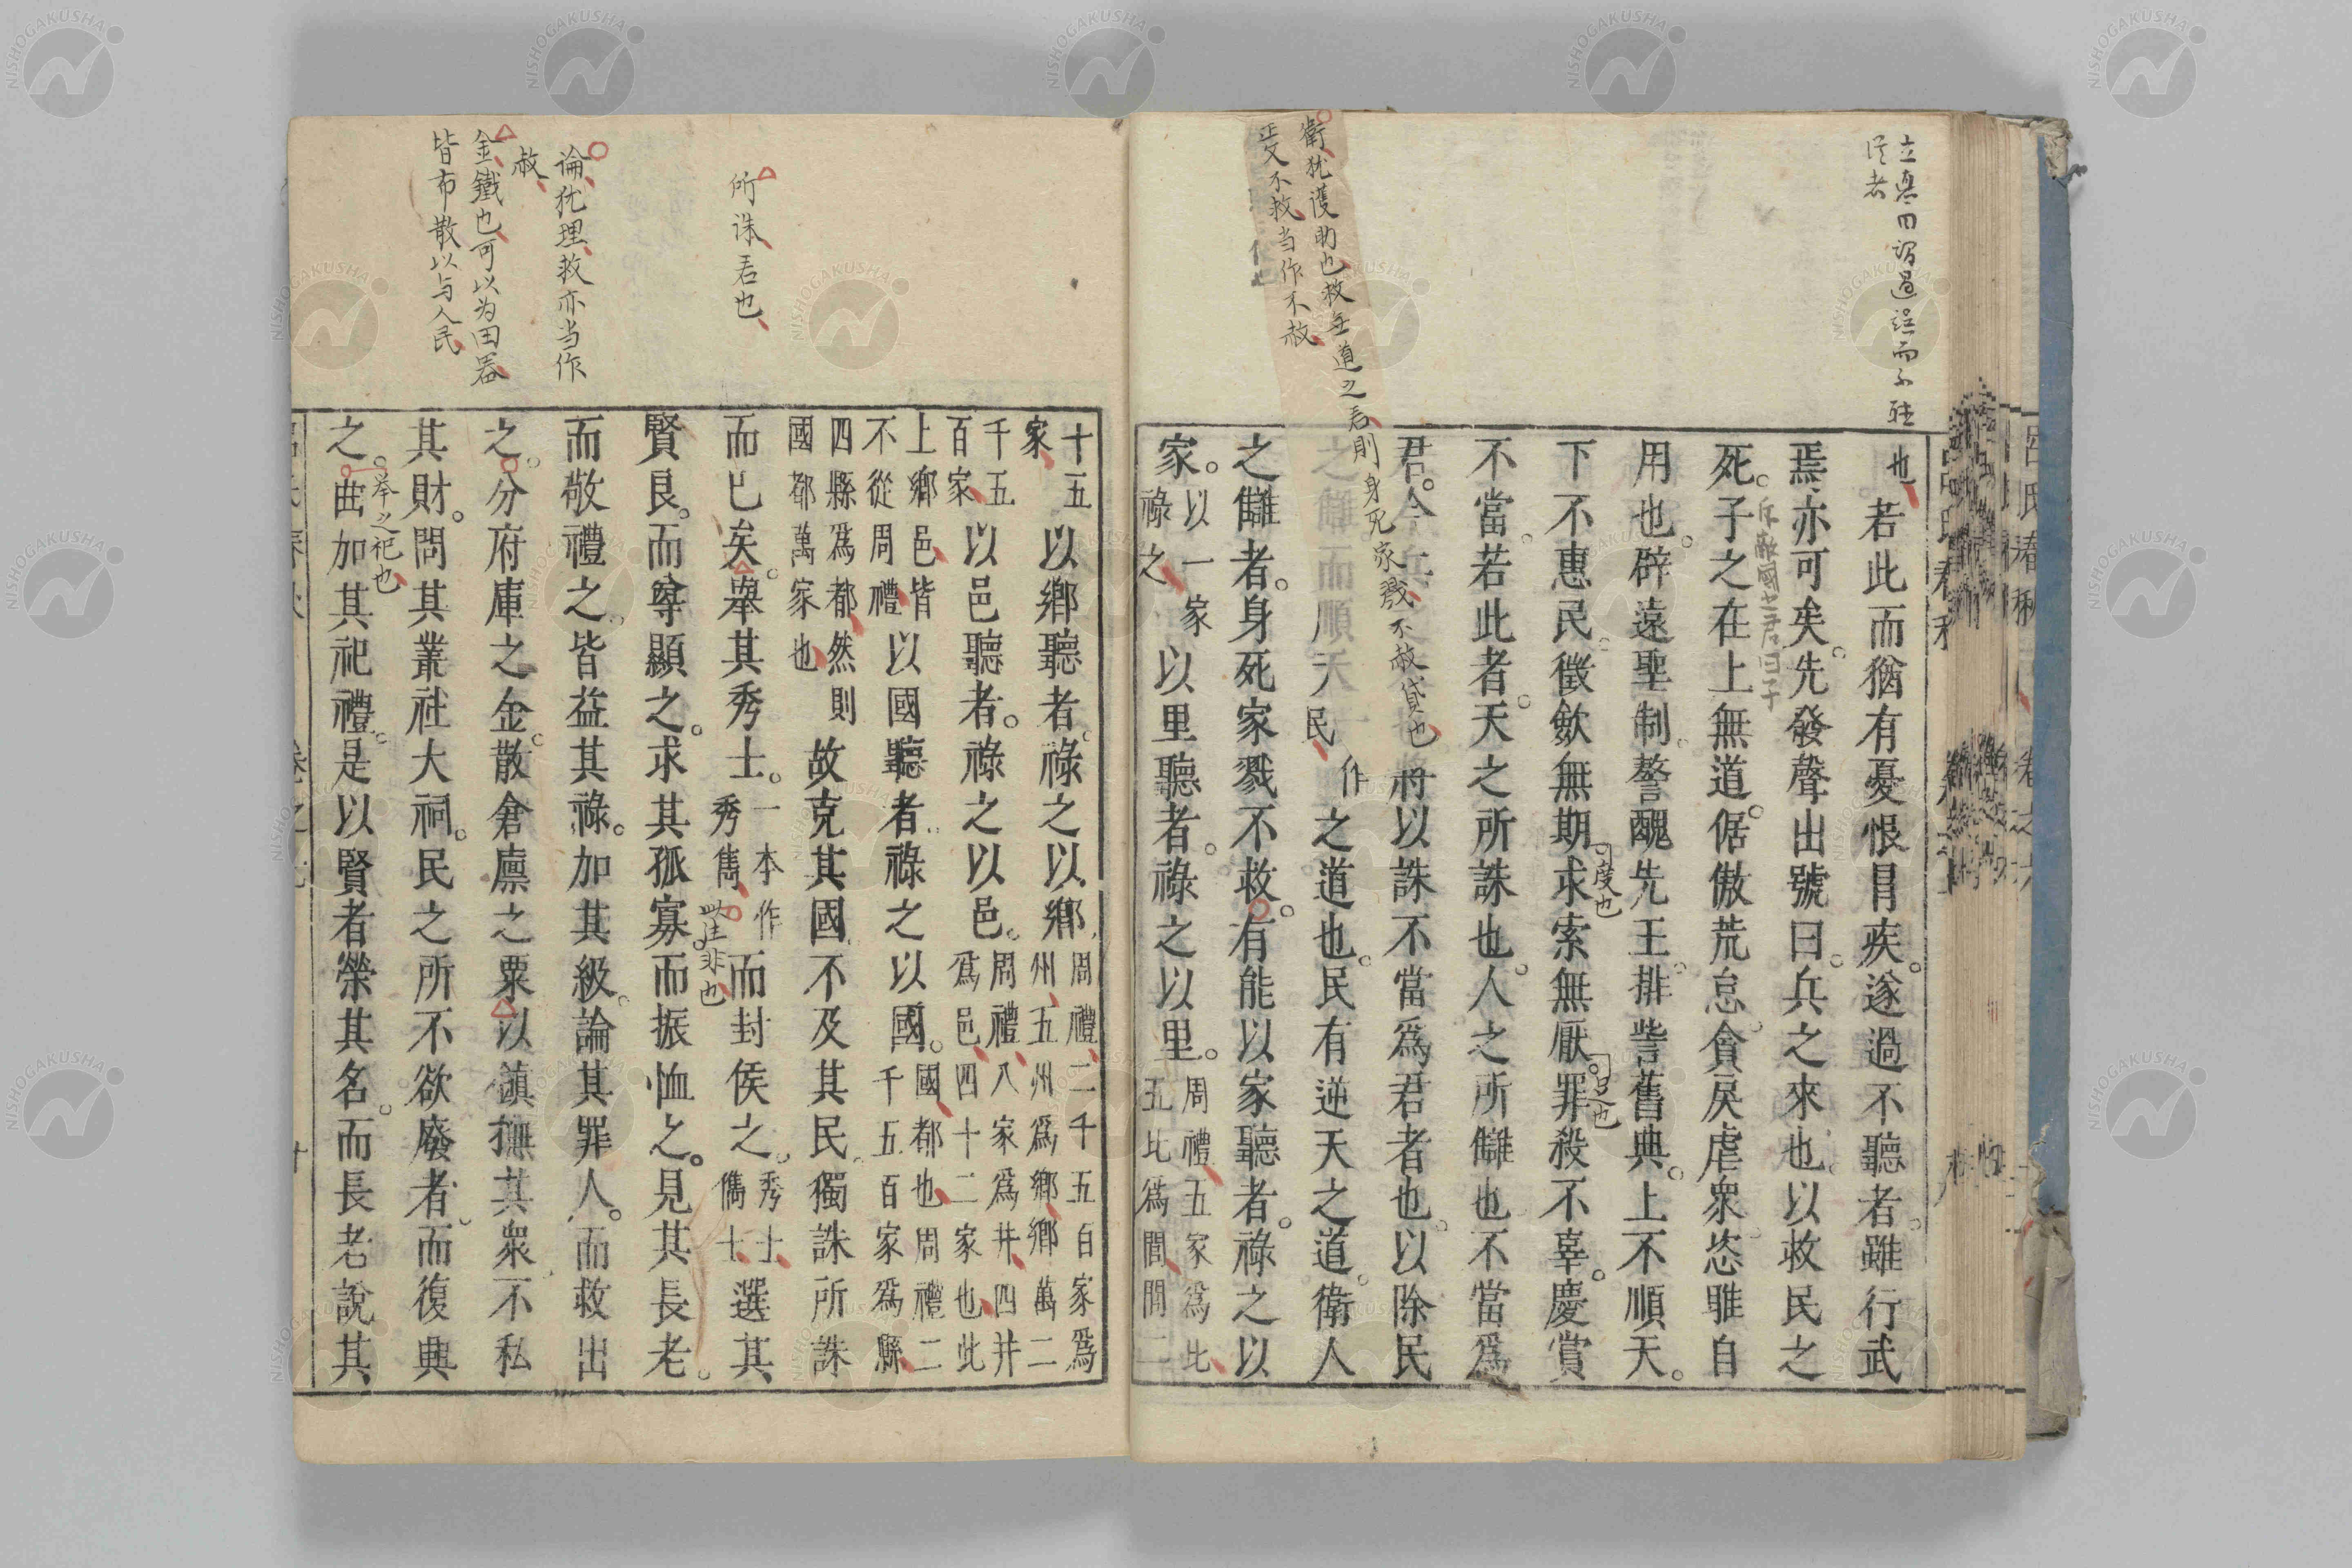 立具曰謂過誤而不聴
従者
衛猶護助也救無道之君則身死家戮不赦貸也
叐不救当作不赦
也若此而猶有憂恨冒疾遂過不聽者雖行武
焉亦可矣先發聲出號曰兵之來也以救民之
斥敵國之君曰子
死子之在上無道倨傲荒怠貪戾虐衆恣睢自
用也辟遠聖制謷醜先王排訾舊典上不順天
度也
下不惠民徵斂無期求索無厭罪殺不辜慶賞
不當若此者天之所誅也人之所讎也不當爲
君今兵之來也將以誅不當爲君者也以除民
之讎而順天民作之道也民有逆天之道衛人
之讎者身死家戮不救有能以家聽者祿之以
家以一家祿之以里聽者祿之以里周禮五家爲比五比爲閭閭二
十五家以鄉聽者祿之以鄉周禮二千五百家爲州五州爲鄉鄉萬二
千五百家以邑聽者祿之以邑周禮八家爲井四井爲邑四十二家也此
上鄉邑皆不從周禮以國聽者祿之以國國都也周禮二千五百家爲縣
四縣爲都然則國都萬家也故克其國不及其民獨誅所誅
所誅君也
而已矣舉其秀士一本作秀雋而封侯之秀士儁士選其
此注非也
賢良而尊顯之求其孤寡而振恤之見其長老
而敬禮之皆益其祿加其級論其罪人而救出
論猶理救亦当作
赦
之分府庫之金散倉廩之粟以鎮撫其衆不私
金鐵也可以为田器
皆布散以与人民
其財問其叢社大祠民之所不欲廢者而復興
挙之祀也
之曲加其祀禮是以賢者榮其名而長老說其